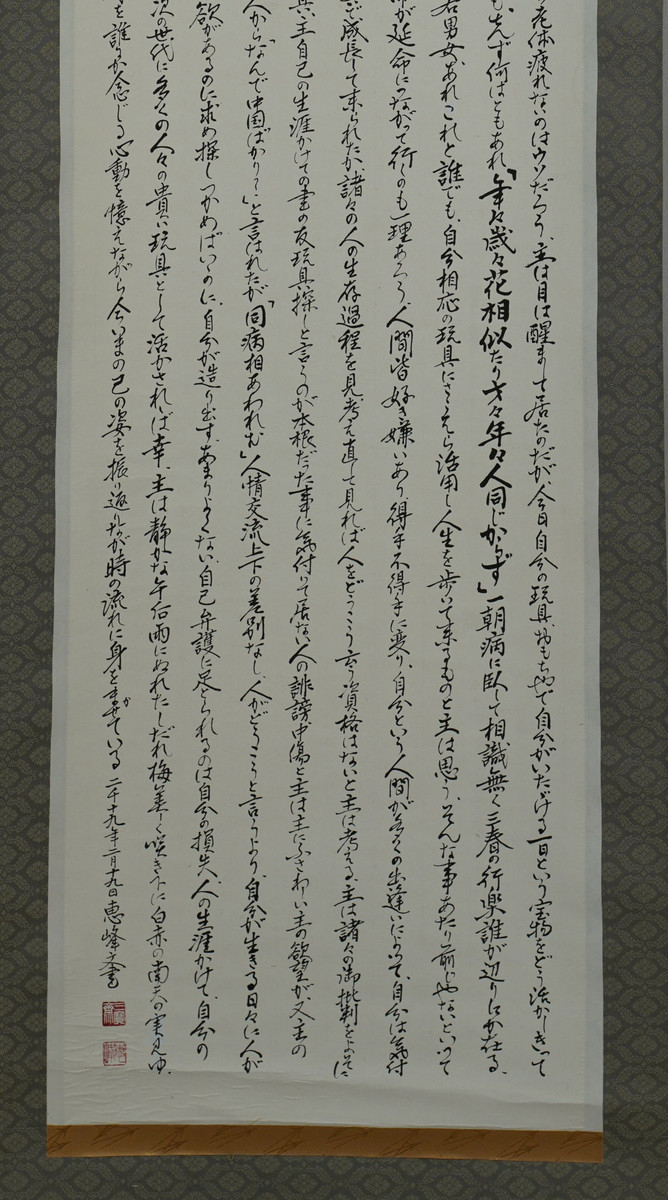 老体疲れないのはウソだろう、主は目は醒まして居たのだが、今日自分の玩具、おもちゃで自分がいただける一日という宝物をどう活かしきって
も、先ず何はともあれ「年々歳々花相似たり歳々年々人同じからず」一朝病に臥して相識無く三春の行楽誰が辺りにか在る、
若男女、あれこれと誰でも、自分相応の玩具にささえら活用し人生を歩いて来るものと主は思う、そんな事あたり前じゃないといって
が延命につながって行くのも一理あろう、人間皆好き嫌いあり、得手不得手に変り、自分という人間が多くの出逢いによって、自分は気付
で成長して来られたか諸々の人の生存過程を見考え直して見れば人をどうこう言う資格はないと主は考える、主は諸々の御批判をよそに
具、主自己の生涯かけての書の友玩具探しと言うのが本根だった事に気付いて居ない人の誹謗、中傷と主は主にふさわしい主の欲望が、又主の
人から「なんで中国ばかり?」と言はれたが「同病相あわれむ」人情交流上下の差別なし、人がどうこうと言うより、自分が生きる日々に人が
欲があるのに求め探しつかめばいいのに、自分が造り出す、あまりよくない、自己弁護に足とられるのは自分の損失、人の生涯かけて、自分の
次の世代に多くの人々の貴い玩具として活かされれば幸、主は静かな午后雨にぬれたしだれ梅美しく咲き下に白赤の南天の実見ゆ、
を誰か念じる心動を憶えながら今いまの己の姿を振り返りながら時の流れに身をまかせている 二千十九年二月十九日 恵峰文書